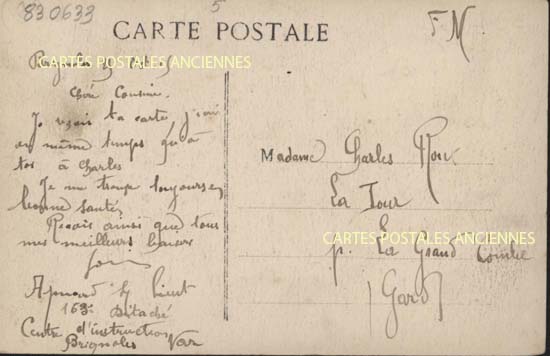 830633
5
CARTE POSTALE
F M
CARTES POSTALES ANCIENNES
Chère Cousine
Je reçois ta carte, j'écris
en même temps qu'à
toi à Charles
Je me trouve toujours en
bonne santé,
Reçois ainsi que tous
mes meilleurs baisers
Lieut
163e Détaché
Centre d'instruction
Brignoles Var
Madame Charles Roux
La Tour
CARTES POSTALES ANCIENNES
p. La Grand Combe
(Gard)